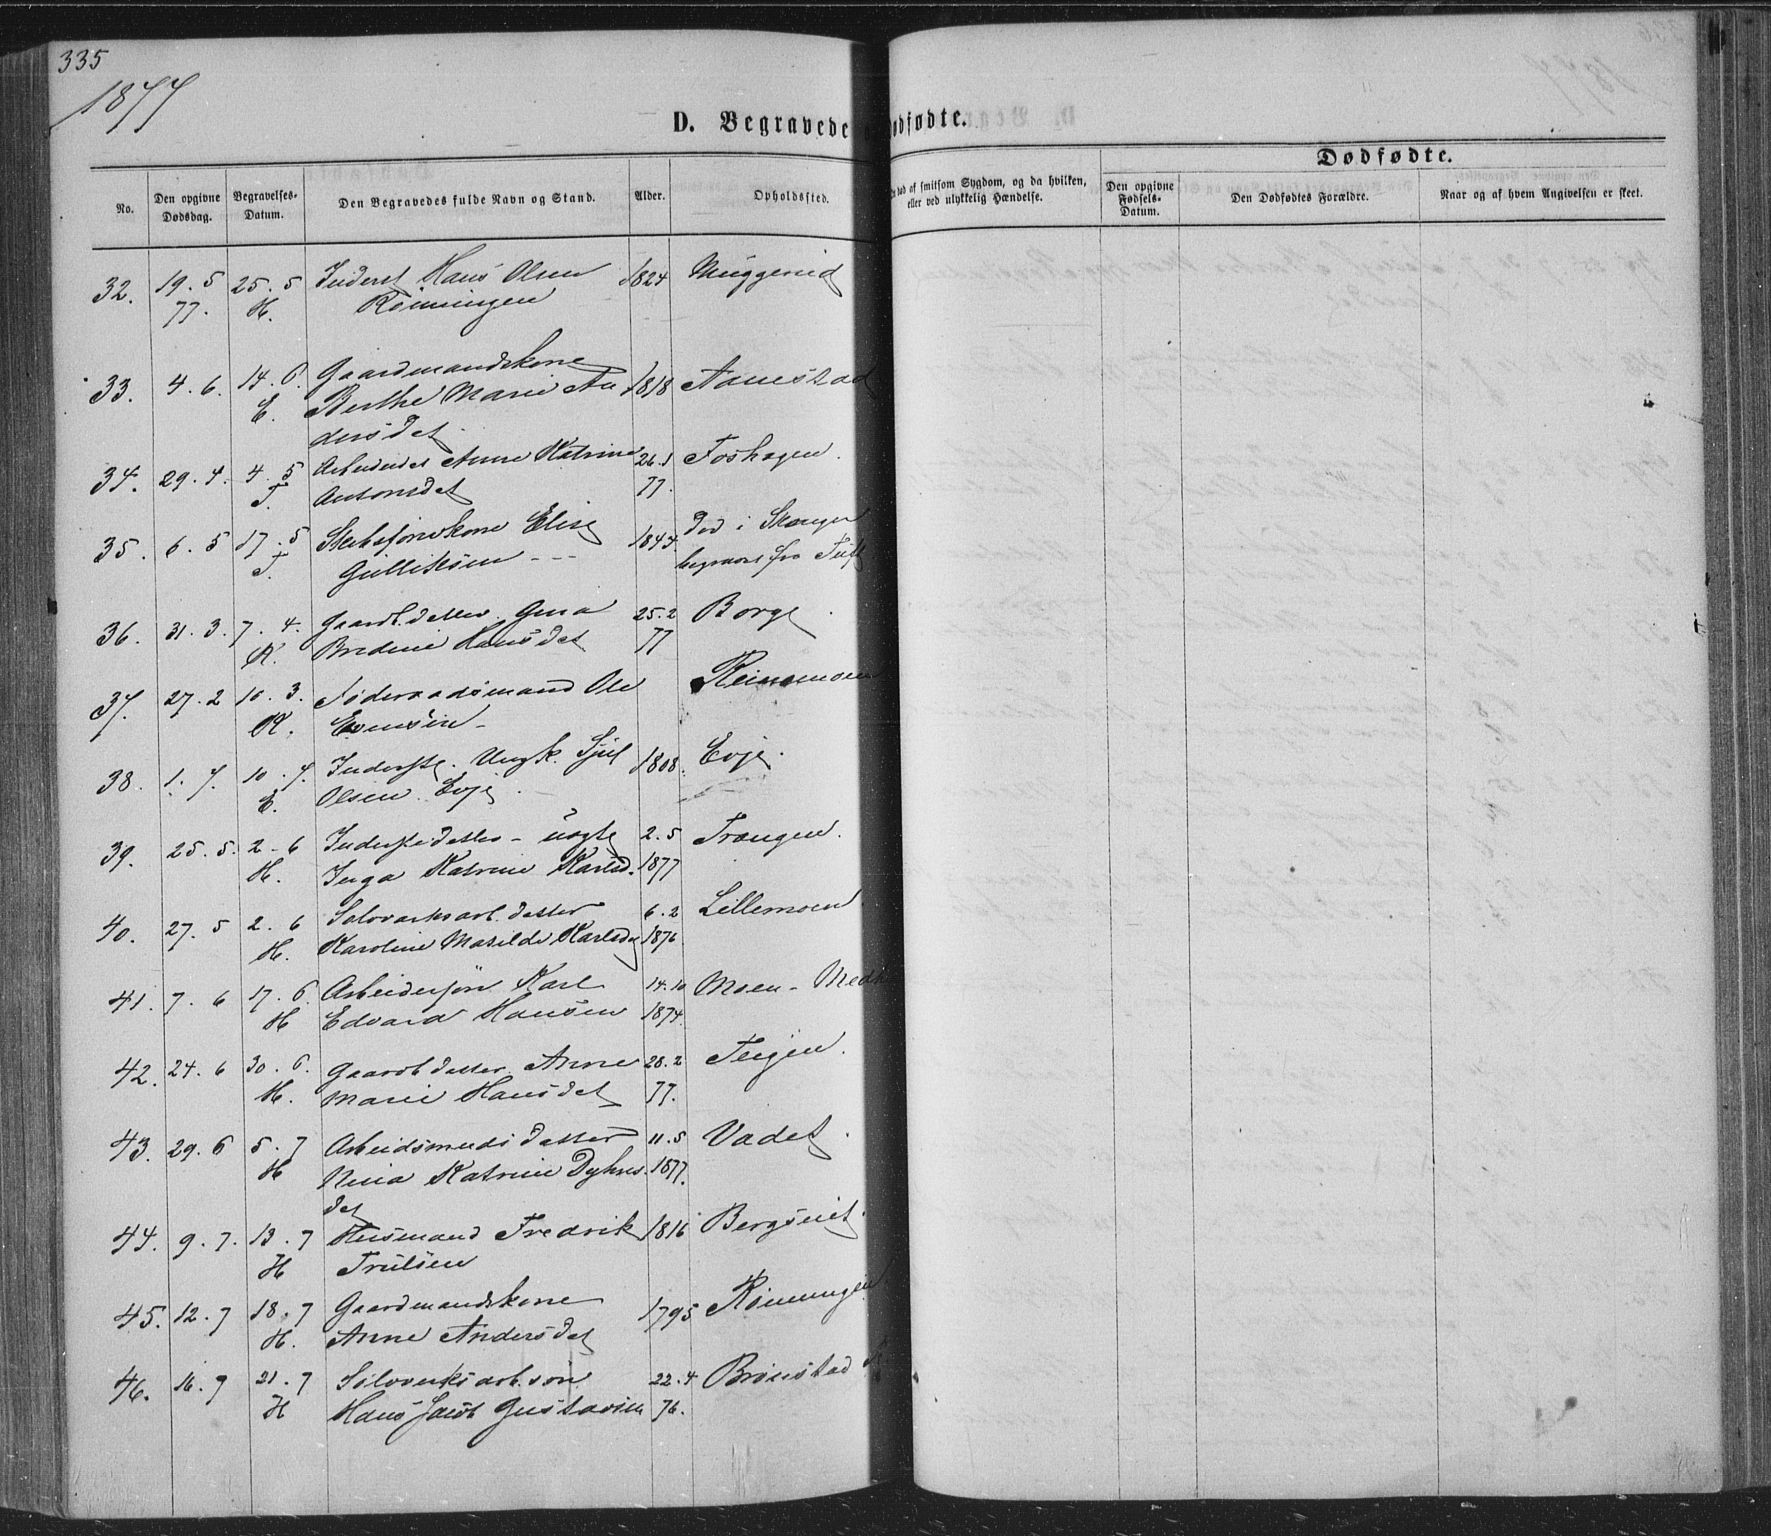 335
1877
D. Begravede og Dødfødte.
No.
Den opgivne Dødsdag.
Begravelses-Datum.
Den Begravedes fulde Navn og Stand.
Alder.
Opholdssted.
død af smitsom Sygdom, og da hvilken,
eller ved ulykkelig Hændelse.
Dødfødte.
Den opgivne Fødsels-Datum.
Den Dødfødtes Forældre.
Naar og af hvem Angivelsen er skeet.
32. 19. 5 25. 5 Inderst Hans Olsen 1824 Muggerud
77. H. Rønningen
33. 4. 6. 14. 6. Gaardmandskone
E. Berthe Marie An 1818 Aamestad
dersdet
34. 29. 4. 4. 5 Anne Katrine 26.1 Foshagen.
T. Antonsdet 77.
35. 6. 5 17. 5 Elise 1844. Død i
T. Gulliksen --- begravet fra
36. 31. 3. 7. 4. Gaardb. datter Gina 25.2 Borge.
K. Bredine Hansdet 77
37. 27. 2 10. 3. Føderaadsmand Ole
K. Evensen -
38. 1. 7. 10. 7. Inderste. Ungk. Sjul 1808. Evje.
E. Olsen Evje.
39. 25. 5. 2 - 6 Inderstedatter - uægte 2. 5 Trangen.
H. Inga Katrine Karlsd. 1877
40. 27. 5 2. 6 Sølvverksarb. datter 6. 2 Lillemoen
H. Karoline Matilde Karlsd 1876
41. 7. 6 17. 6. Arbeidersøn Karl 14.10 Moen -
H Edvard Hansen 1874.
42. 24. 6 30. 6. Gaardb datter Anne 28.2 Teigen.
H. Marie Hansdet 77.
43. 29. 6 5. 7 Arbeidsmands datter 11.5 Vadet.
H Katrine 1877.
det
44. 9. 7. 13. 7 Husmand Fredrik 1816 Bergseiet.
H Trulsen
45. 12. 7 18. 7 Gaardmandskone 1795 Rønningen
H. Anne Andersdet
46. 16. 7 21. 7 Sølvverksarb. søn 22.4 Brønstad
H Hans Jacob Gustavsen 76.